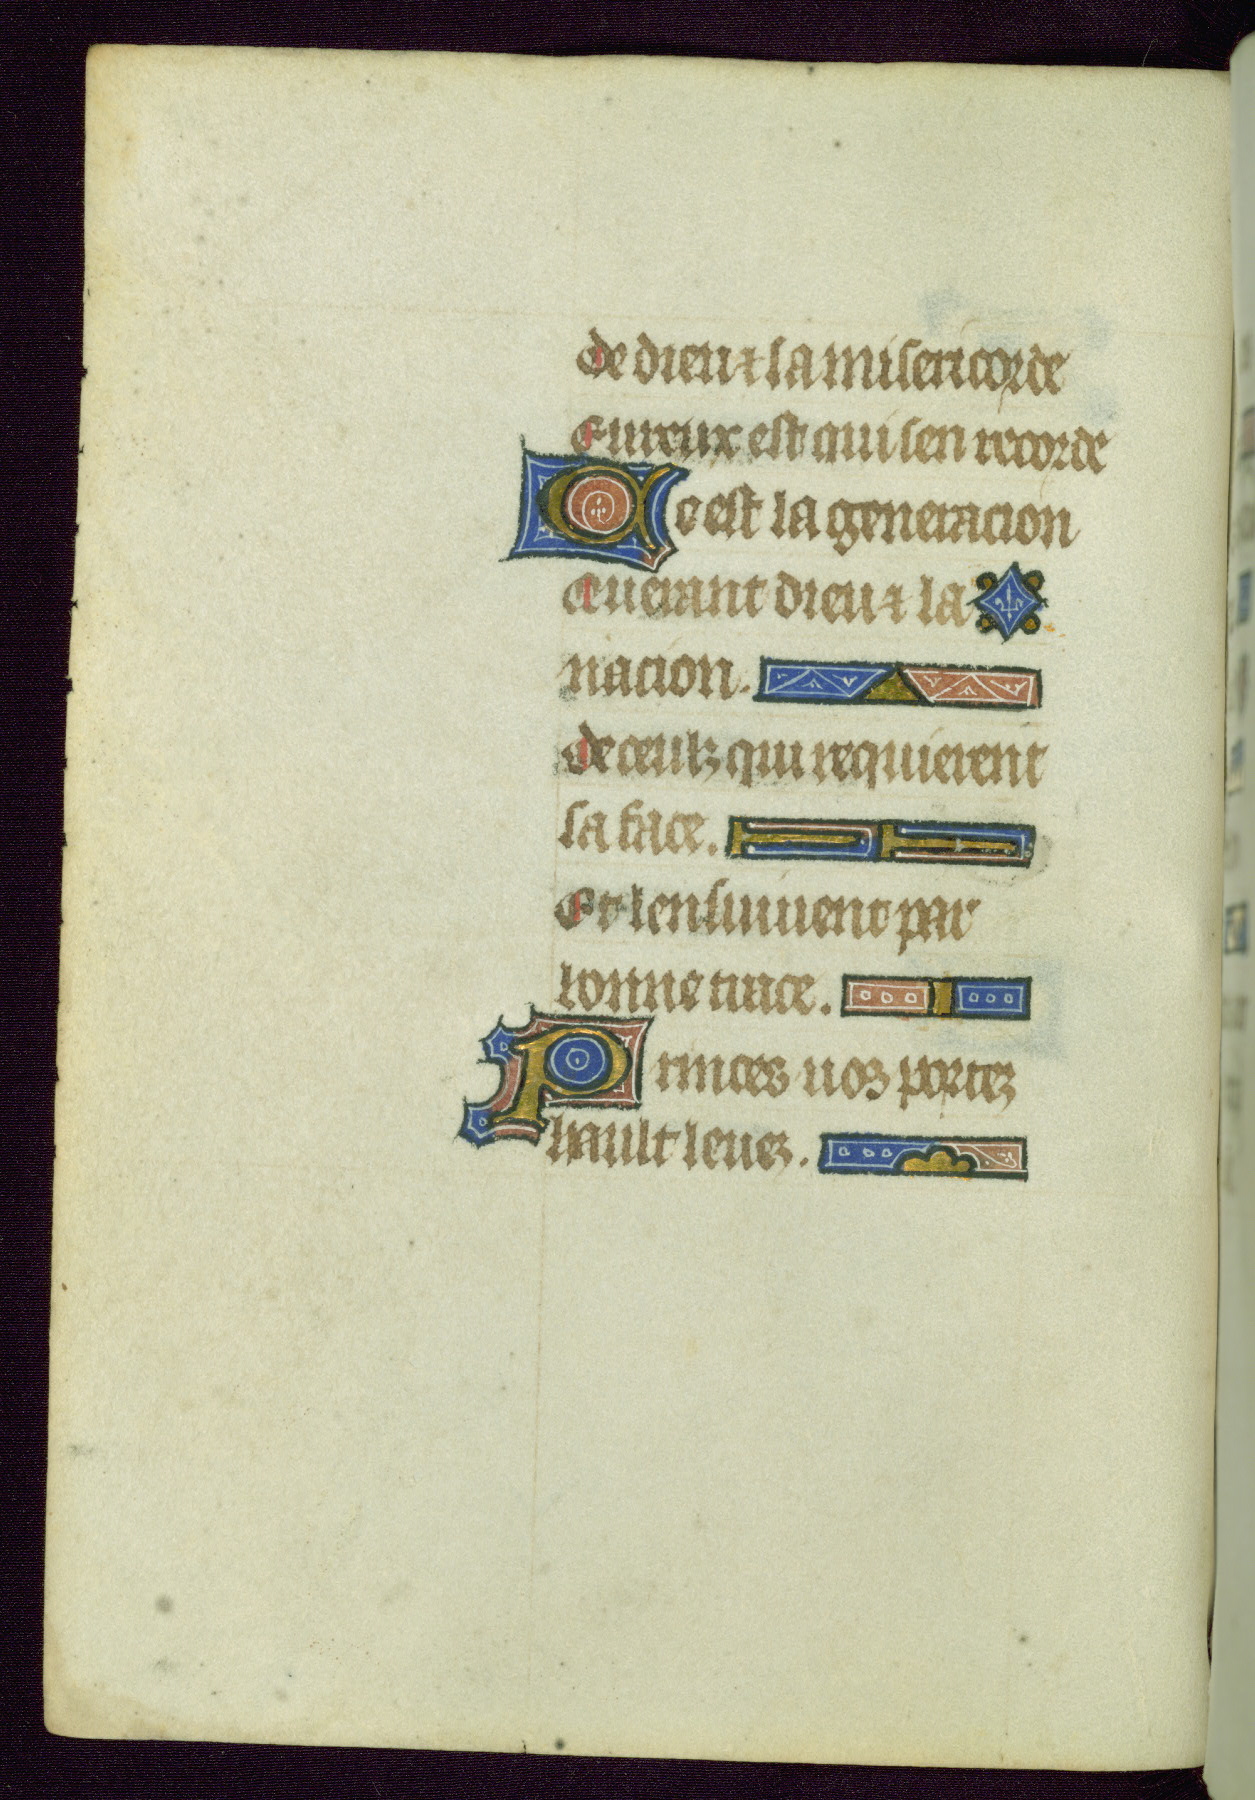 De dieu ⁊ sa misericorde
Eureux est qui sen recorde
Ce est la generacion
Querant dieu ⁊ la
nacion.
De ceulz qui requierent
sa face.
Et lensuiuent par
bonne trace.
Princes uoz portez
hault leuez.